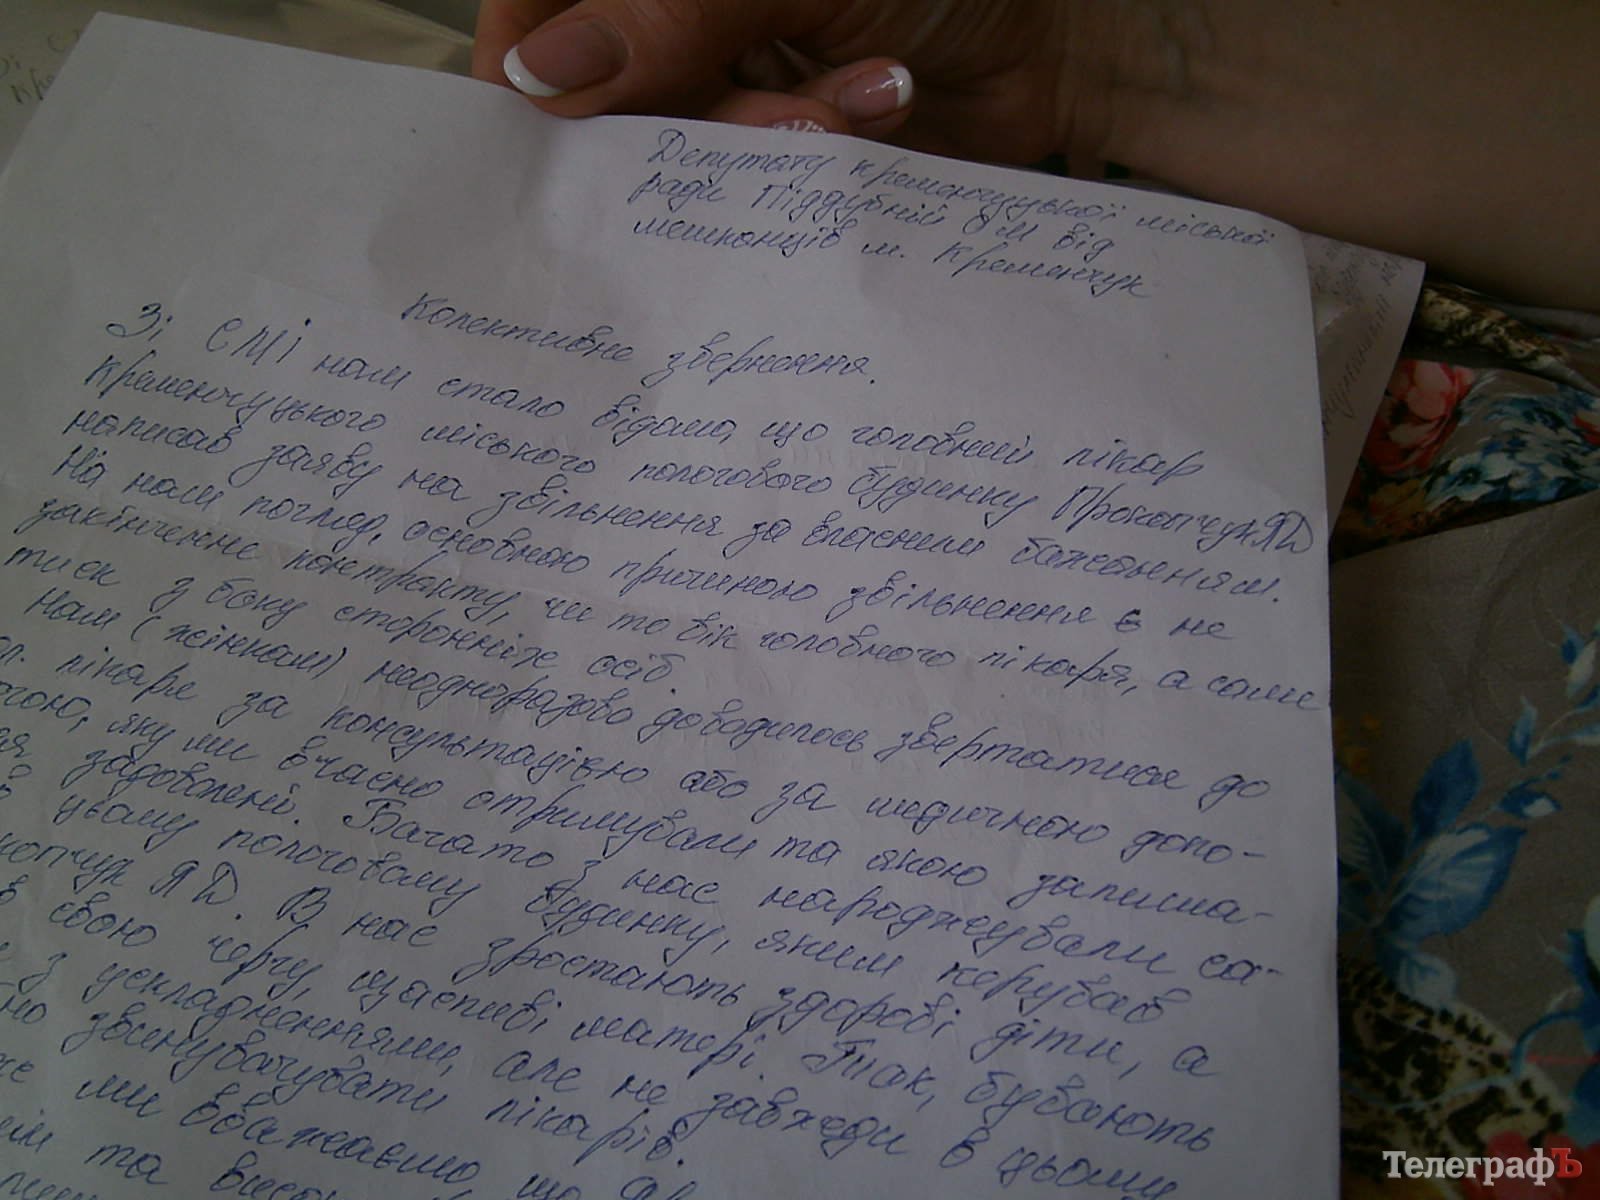 Депутату кременчуцької міської
ради Піддубній О М від
мешканців м. Кременчук
Колективне звернення.
Зі СМІ нам стало відомо, що головний лікар
Кременчуцького міського пологового будинку Прокопчук Я Д
написав заяву на звільнення за власним бажанням.
На наш погляд, основною причиною звільнення є не
закінчення контракту, чи то вік головного лікаря, а саме
тиск з боку сторонніх осіб.
Нам (жінкам) неодноразово доводилось звертатися до
лікаря за консультацією або за медичною допо-
могою, яку ми вчасно отримували та якою залиша-
задоволені. Багато з нас народжували са-
цьому пологовому будинку, яким керував
копчук Я Д. В нас зростають здорові діти, а
свою чергу, щасливі матері. Так, бувають
з ускладненнями, але не завжди в цьому
звинувачувати лікарів.
ми вважаємо, що
та
ТелеграфЪ